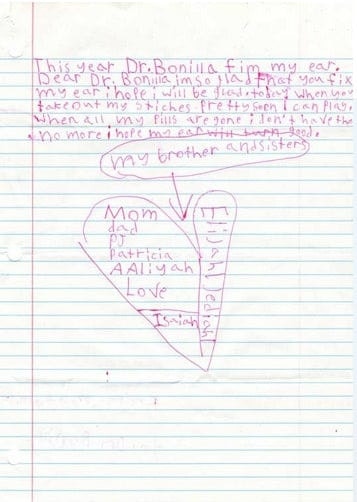 This year Dr. Bonilla fim my ear.
Dear Dr. Bonilla im so glad that you fix
my ear i hope i will be glad today when you
take out my stiches pretty soon i can play.
When all my pills are gone i don't have the
no more i hope my ear will turn good.
my brother and sisters
Mom
dad
PJ
Patricia
AAliyah
Love
Isaiah
Elijah Jediah